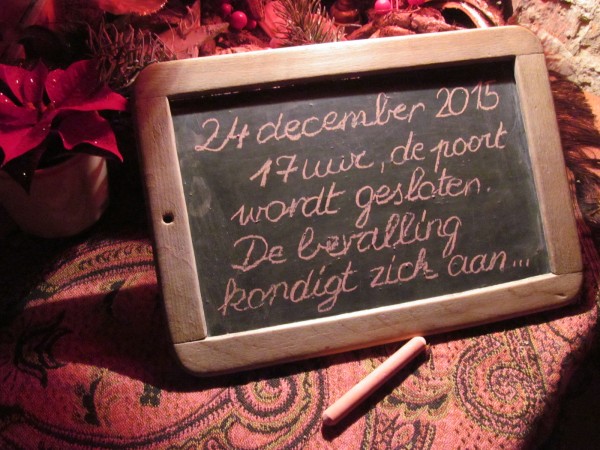 24 december 2015
17 uur, de poort
wordt gesloten.
De bevalling
kondigt zich aan...